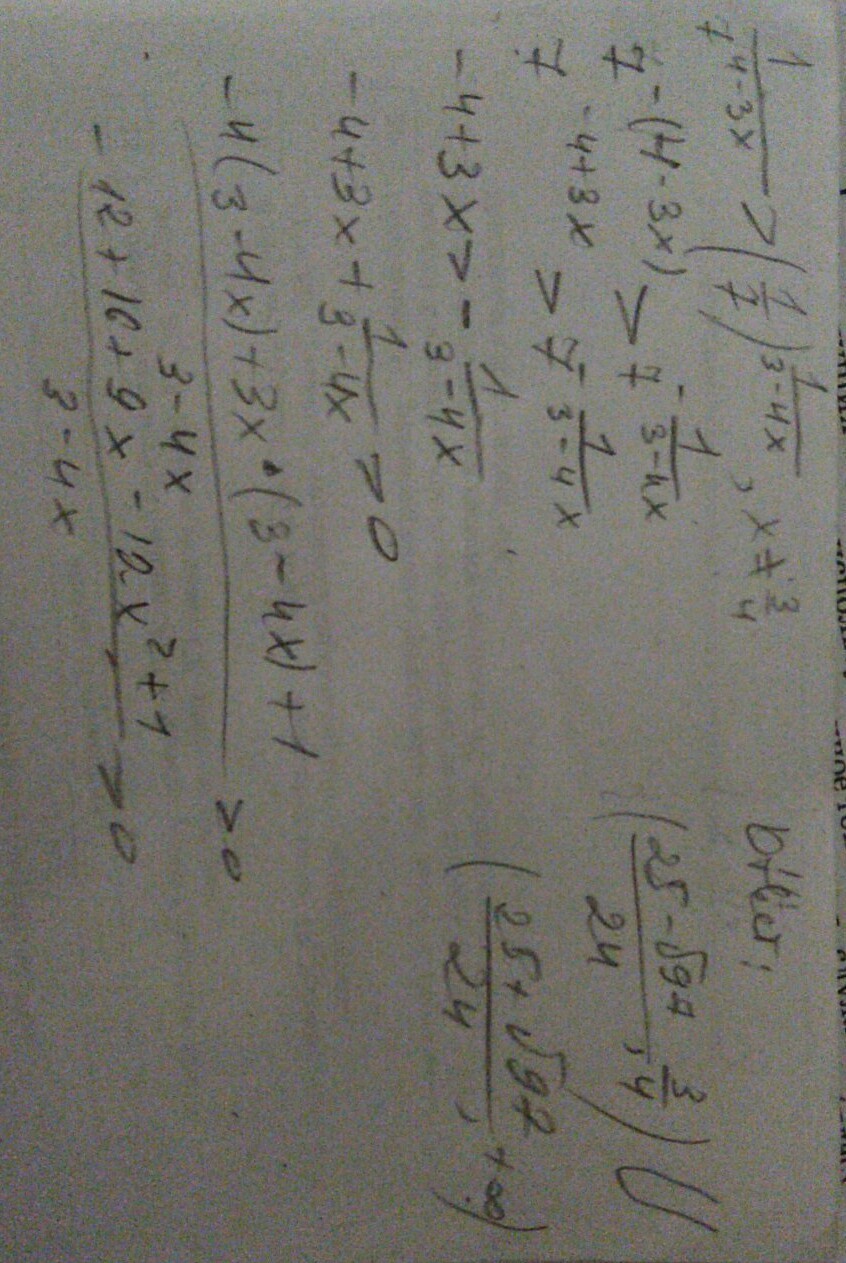 1/7^(4-3x) > (1/7)^(1/(3-4x)), x ≠ 3/4
7^(-(4-3x)) > 7^(-1/(3-4x))
7^(-4+3x) > 7^(-1/(3-4x))
-4+3x > -1/(3-4x)
-4+3x+1/(3-4x) > 0
(-4(3-4x)+3x·(3-4x)+1)/(3-4x) > 0
(-12+16+9x-12x²+1)/(3-4x) > 0
Ответ:
((25-√97)/24, 3/4) ∪
((25+√97)/24, +∞)